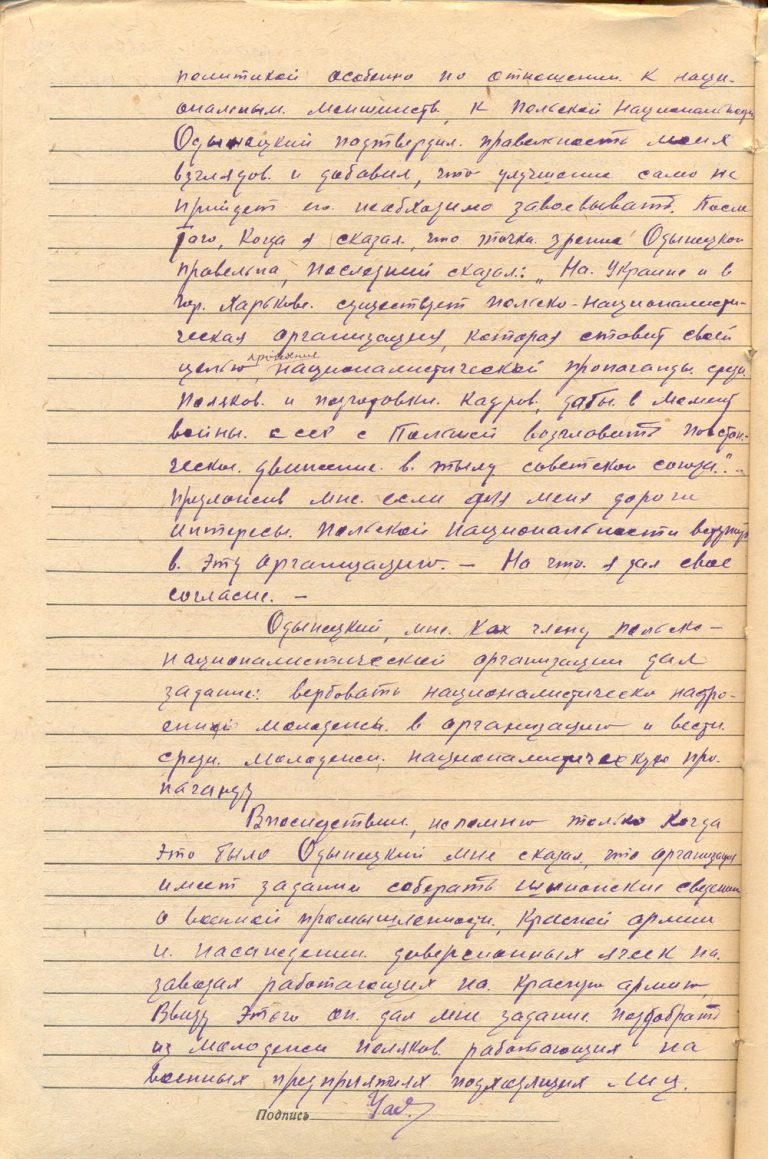 политикой особенно по отношении к наци-
ональным меншинств, к польской национальности
Одынецкий подтвердил правельность моих
взглядов и добавил, что улучшение само не
прийдет его необходимо завоевывать. После
того, когда я сказал, что точка зрение Одынецкой
правельна, последний сказал: „На Украине и в
гор. Харькове существует польско-национали­сти-
ческая организация, которая ставит своей
целью национали­стической пропаганды среди
поляков и подготовки кадров, дабы в момент
войны СССР с Польшей возглавить повстан-
ческое движение в тылу советской союза". –
предложив мне если для меня дороги
интересы польской национальности вступить
в эту организацию. – На что я дал свое
согласие. –
Одынецкий, мне как члену польско-
националистической организации дал
задание: вербовать националистически настро-
енную молодежь в организацию и вести
среди молодежи националистическую про-
паганду
Впоследствии, не помню только когда
это было Одынецкий мне сказал, что организация
имеет задании соберать шпионские сведении
о военной промышленности, красной армии
и насаждении диверсионных ячеек на
заводах работающих на красную армию,
Ввиду этого он дал мне задание подобрать
из молодежи поляков работающих на
военных предприятиях подходящих лиц.
Подпись